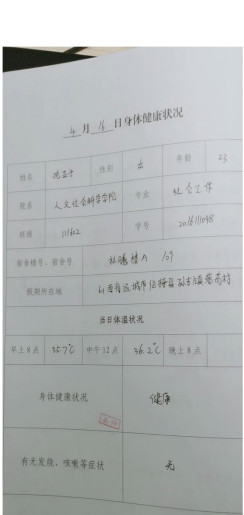 4 月 16 日身体健康状况
姓名 性别 女 年龄 23
院系 人文社会科学学院 专业 社会工作
班级 111602 学号
宿舍楼号、宿舍号 楼A 109
假期所在地 山西省运城市临猗县孙吉镇
当日体温状况
早上8点 35.7℃ 中午12点 36.2℃ 晚上8点
身体健康状况 健康
有无发烧、咳嗽等症状 无